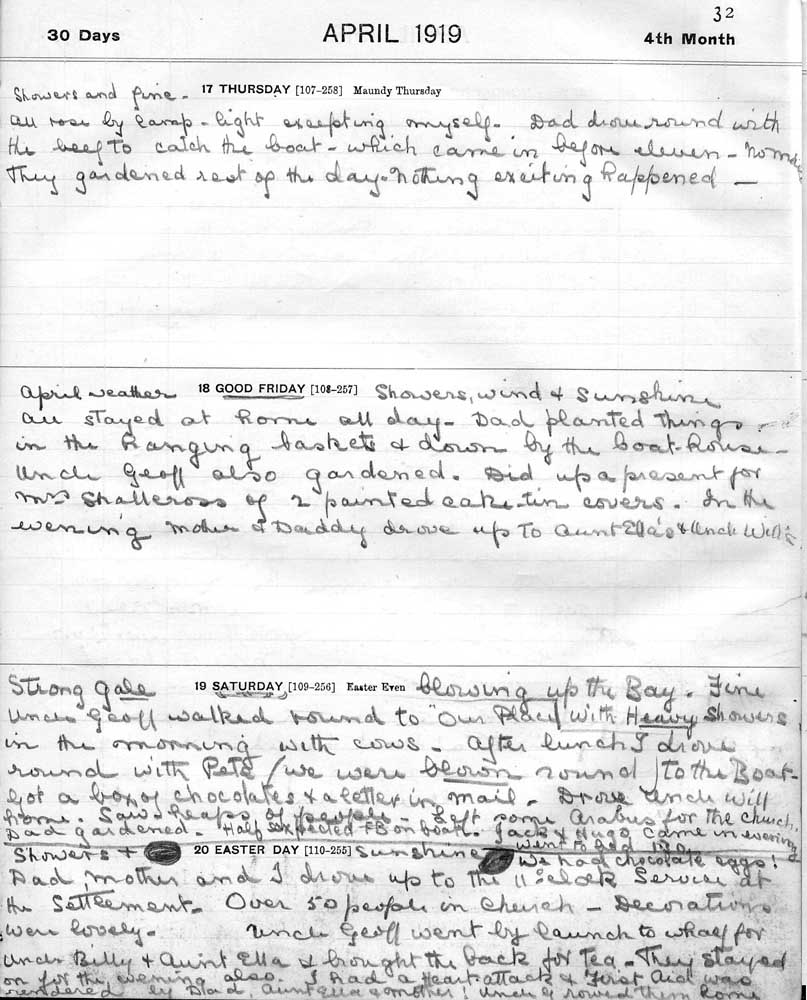 32
30 Days APRIL 1919 4th Month
Showers and fine. 17 THURSDAY [107-258] Maundy Thursday
All rose by lamp-light excepting myself. Dad drove round with
the beef to catch the boat - which came in before eleven -
They gardened rest of the day. Nothing exciting happened —
April weather 18 GOOD FRIDAY [108-257] Showers, wind & Sunshine
All stayed at home all day - Dad planted things
in the hanging baskets & down by the boat-house -
Uncle Geoff also gardened. Did up a present for
Mrs Shallcross of 2 painted cake-tin covers. In the
evening Mother & Daddy drove up to Aunt Ella's & Uncle Will's
Strong gale 19 SATURDAY [109-256] Easter Even blowing up the Bay. Fine
Uncle Geoff walked round to "Our Place" with Heavy Showers
in the morning with cows - After lunch I drove
round with Pete (we were blown round) to the Boat-
Got a box of chocolates & a letter in mail - Drove Uncle Will
home. Saw heaps of people - Left some Arabus for the church,
Dad gardened. Half expected FB on boat. Jack & Hugo came in evening
went to bed
Showers & 20 EASTER DAY [110-255] Sunshine We had chocolate eggs!
Dad, Mother and I drove up to the 11 o'clock Service at
the Settlement. Over 50 people in Church - Decorations
were lovely. Uncle Geoff went by launch to wharf for
Uncle Billy & Auint Ella & brought the back for Tea - They stayed
on for the evening also. I had a Heart-attack & First Aid was
rendered by Dad, Aunt Ella & Mother! Uncle G rowed them home